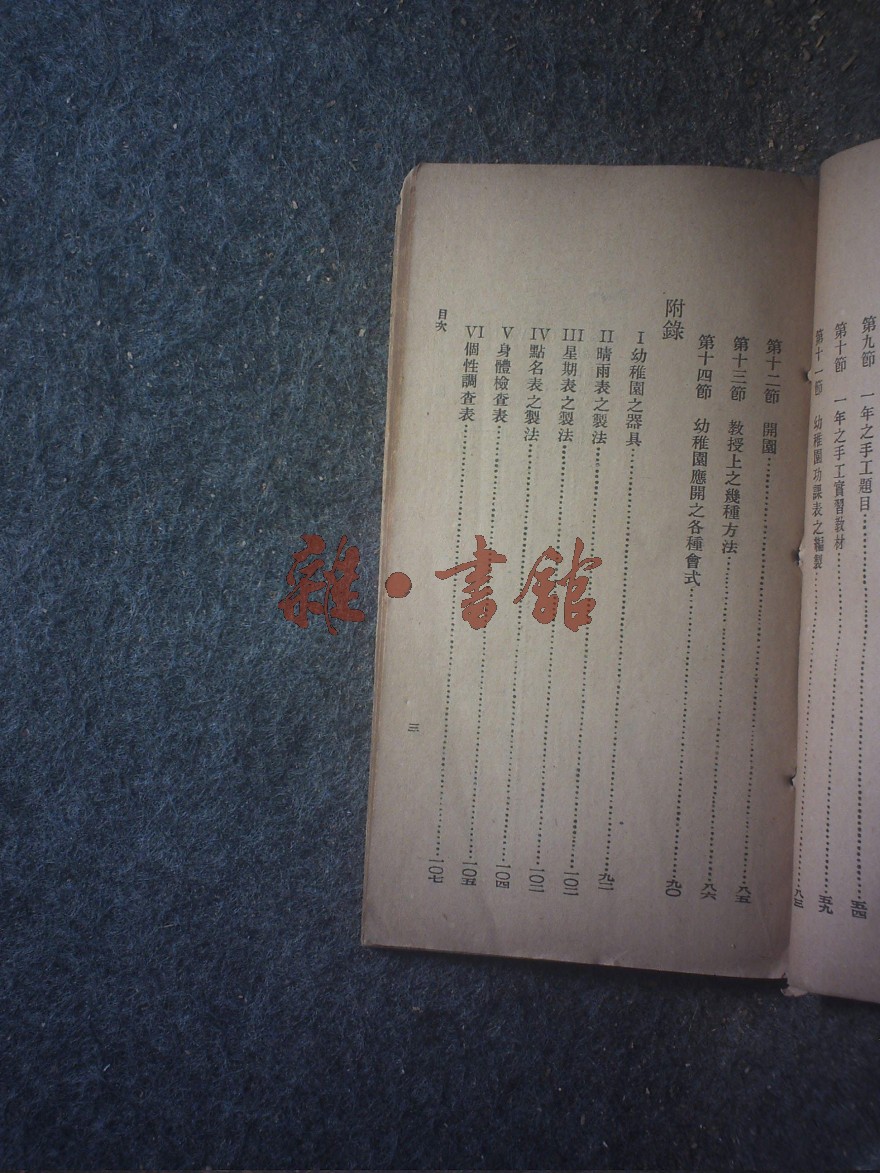 第九節　一年之手工題目……五四
第十節　一年之手工實習教材……五九
第十一節　幼稚園功課表之編製……八三
第十二節　開園……八五
第十三節　教授上之幾種方法……八六
第十四節　幼稚園應開之各種會式……九〇
附錄
I 幼稚園之器具……九二
II 晴雨表之製法……一〇二
III 星期表之製法……一〇二
IV 點名表之製法……一〇四
V 身體檢查表……一〇五
VI 個性調查表……一〇七
目次
三
雜·書館